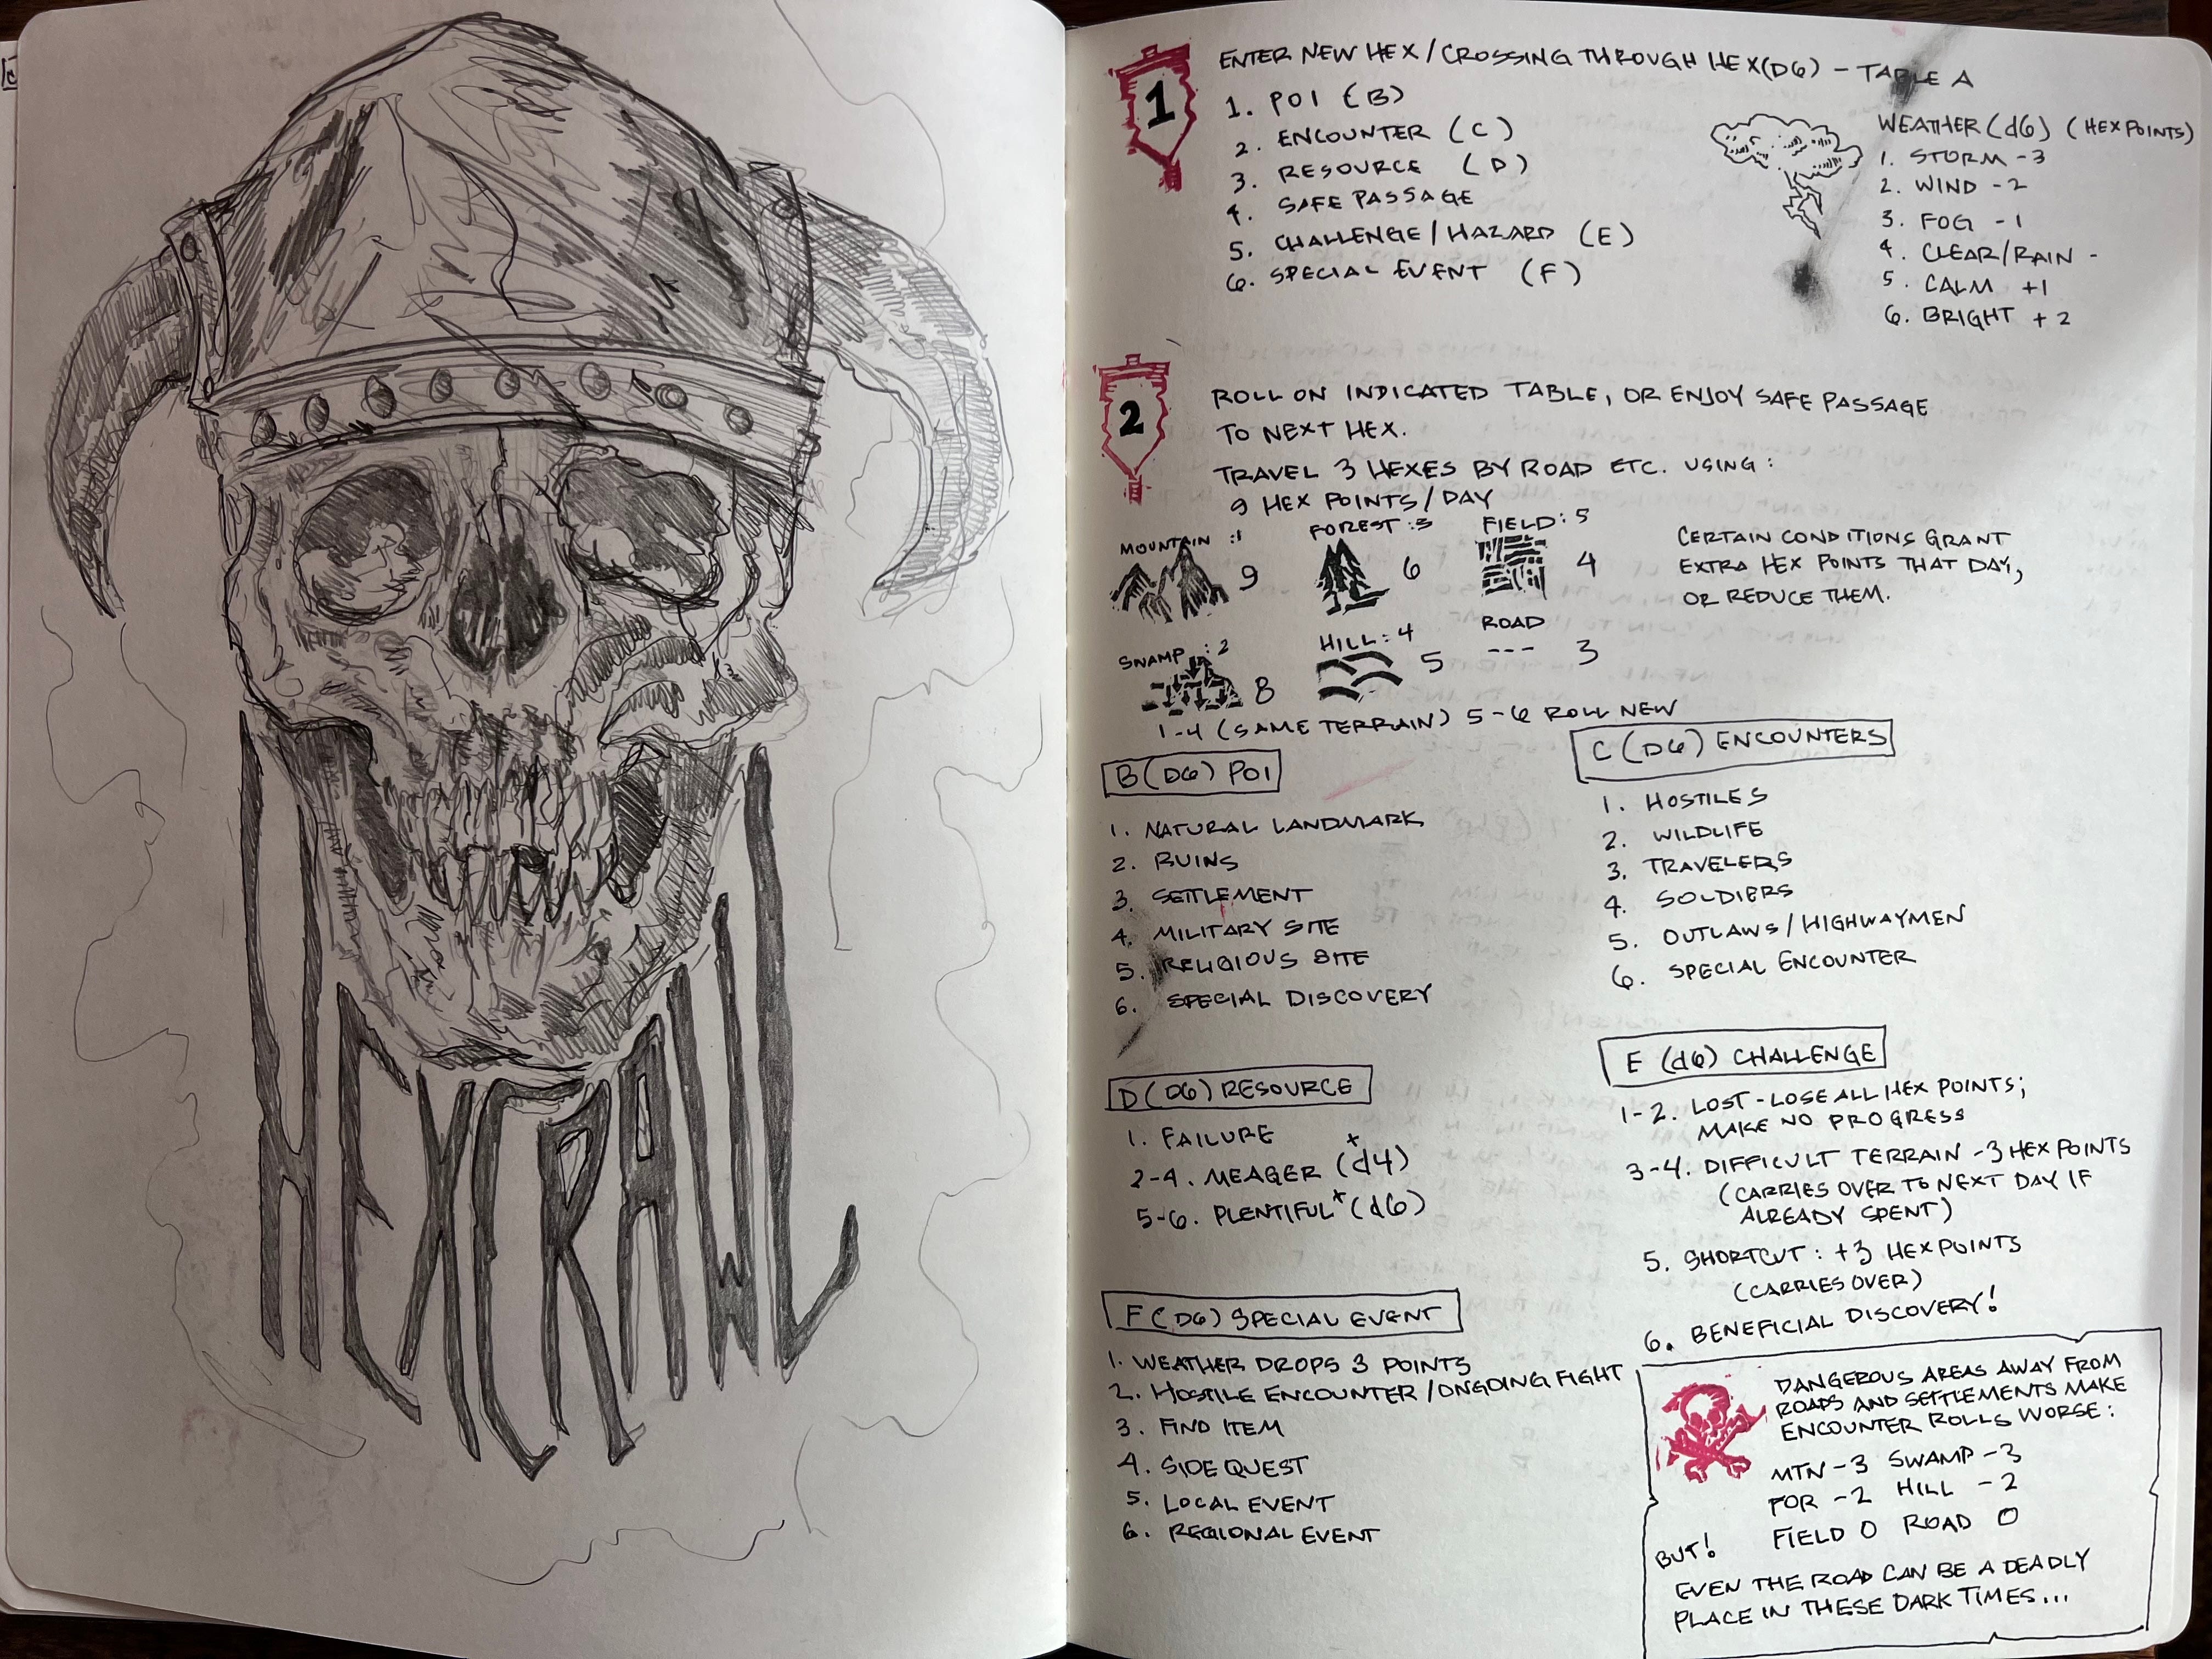 HEXCRAWL
1
ENTER NEW HEX/CROSSING THROUGH HEX(D6) - TABLE A
1. POI (B)
2. ENCOUNTER (C)
3. RESOURCE (D)
4. SAFE PASSAGE
5. CHALLENGE/HAZARD (E)
6. SPECIAL EVENT (F)
WEATHER(d6) (HEXPOINTS)
1. STORM -3
2. WIND -2
3. FOG -1
4. CLEAR/RAIN -
5. CALM +1
6. BRIGHT +2
2
ROLL ON INDICATED TABLE, OR ENJOY SAFE PASSAGE
TO NEXT HEX.
TRAVEL 3 HEXES BY ROAD ETC. USING:
9 HEX POINTS/DAY
MOUNTAIN :1
9
FOREST :3
6
FIELD: 5
4
SWAMP :2
8
HILL: 4
5
ROAD
--- 3
CERTAIN CONDITIONS GRANT
EXTRA HEX POINTS THAT DAY,
OR REDUCE THEM.
1-4 (SAME TERRAIN) 5-6 ROLL NEW
B (D6) POI
1. NATURAL LANDMARK
2. RUINS
3. SETTLEMENT
4. MILITARY SITE
5. RELIGIOUS SITE
6. SPECIAL DISCOVERY
C (D6) ENCOUNTERS
1. HOSTILES
2. WILDLIFE
3. TRAVELERS
4. SOLDIERS
5. OUTLAWS/HIGHWAYMEN
6. SPECIAL ENCOUNTER
D (D6) RESOURCE
1. FAILURE
2-4. MEAGER (d4)
5-6. PLENTIFUL (d6)
E (d6) CHALLENGE
1-2. LOST - LOSE ALL HEX POINTS;
MAKE NO PROGRESS
3-4. DIFFICULT TERRAIN -3 HEX POINTS
(CARRIES OVER TO NEXT DAY IF
ALREADY SPENT)
5. SHORTCUT: +3 HEXPOINTS
(CARRIES OVER)
6. BENEFICIAL DISCOVERY!
F (D6) SPECIAL EVENT
1. WEATHER DROPS 3 POINTS
2. HOSTILE ENCOUNTER/ONGOING FIGHT
3. FIND ITEM
4. SIDE QUEST
5. LOCAL EVENT
6. REGIONAL EVENT
DANGEROUS AREAS AWAY FROM
ROADS AND SETTLEMENTS MAKE
ENCOUNTER ROLLS WORSE:
MTN -3 SWAMP -3
FOR -2 HILL -2
FIELD 0 ROAD 0
BUT!
EVEN THE ROAD CAN BE A DEADLY
PLACE IN THESE DARK TIMES...